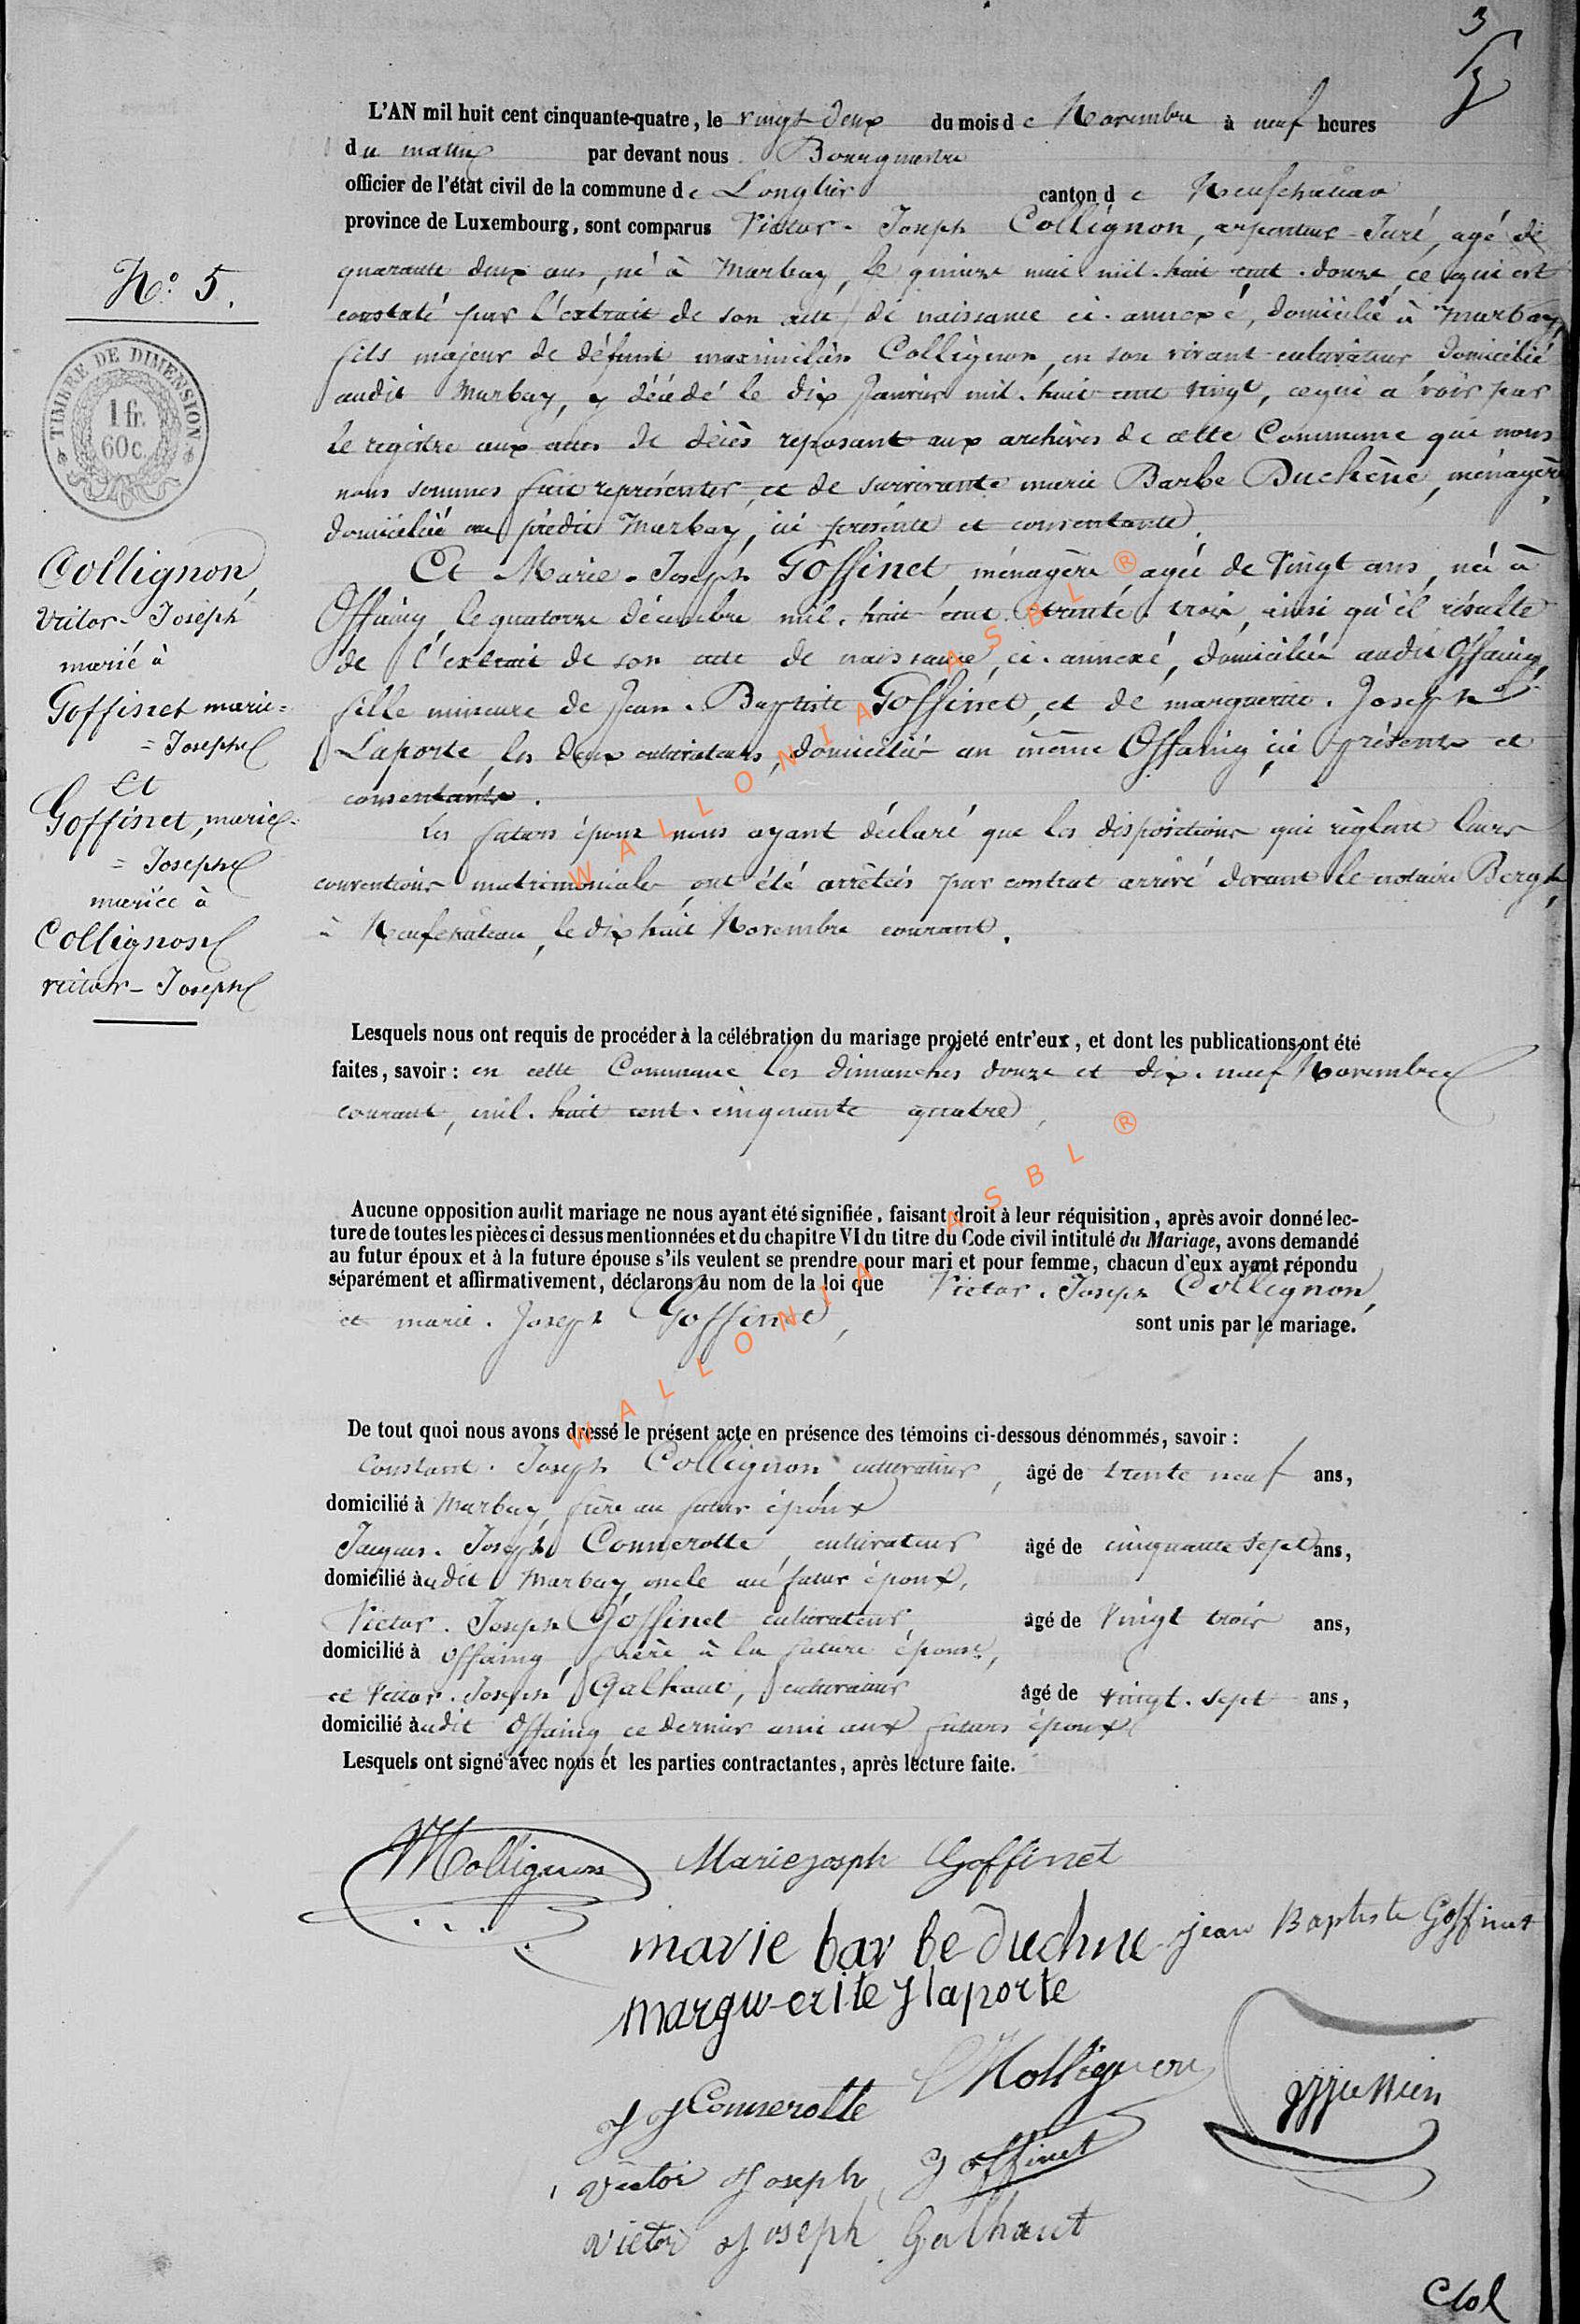 3
L'AN mil huit cent cinquante-quatre, le vingt deux du mois de Novembre à neuf heures
du matin par devant nous Bourgmestre
officier de l'état civil de la commune de Longlier canton de Neufchateau
province de Luxembourg, sont comparus Victor-Joseph Collignon, arpenteur-Juré, agé de
quarante deux ans, né à Marbay, le quinze mai mil-huit cent-douze, ce qui est
constaté par l'extrait de son acte de naissance ci-annexé, domicilié à Marbay,
fils majeur de défunt maximilien Collignon, en son vivant cultivateur domicilié
audit Marbay, y décédé le dix Janvier mil-huit cent vingt, ce qui a voir par
le registre aux actes de décès reposant aux archives de cette Commune que nous
nous sommes fait représenter, et de survivante marie Barbe Duchêne, ménagère
domiciliée au prédit Marbay, ici présente et consentante.
Et Marie-Joseph Goffinet, ménagère, agée de Vingt ans, née à
Offaing, le quatorze décembre mil-huit cent trente trois, ainsi qu'il résulte
de l'extrait de son acte de naissance, ci-annexé, domiciliée audit Offaing,
fille mineure de Jean-Baptiste Goffinet, et de marguerite-Joseph
Laporte, les deux cultivateurs, domiciliés au même Offaing, ici présents et
consentants.
Les futurs époux nous ayant déclaré que les dispositions qui règlent leurs
conventions matrimoniales, ont été arrêtées par contrat arrivé devant le notaire Bergh,
à Neufchâteau, le dix huit Novembre courant.
N° 5.
TIMBRE DE DIMENSION
1 fr.
60 c.
Collignon,
Victor-Joseph
marié à
Goffinet marie=
=Joseph
Et
Goffinet, marie=
=Joseph
mariée à
Collignon
victor-Joseph
Lesquels nous ont requis de procéder à la célébration du mariage projeté entr'eux, et dont les publications ont été
faites, savoir: en cette Commune les dimanches douze et dix-neuf Novembre
courant, mil-huit cent-cinquante quatre,
Aucune opposition audit mariage ne nous ayant été signifiée, faisant droit à leur réquisition, après avoir donné lec-
ture de toutes les pièces ci dessus mentionnées et du chapitre VI du titre du Code civil intitulé du Mariage, avons demandé
au futur époux et à la future épouse s'ils veulent se prendre pour mari et pour femme, chacun d'eux ayant répondu
séparément et affirmativement, déclarons au nom de la loi que Victor-Joseph Collignon,
et marie-Joseph Goffinet, sont unis par le mariage.
De tout quoi nous avons dressé le présent acte en présence des témoins ci-dessous dénommés, savoir:
Constant-Joseph Collignon, cultivateur, âgé de trente neuf ans,
domicilié à Marbay, frère au futur époux
Jacques-Joseph Connerotte, cultivateur âgé de cinquante sept ans,
domicilié audit Marbay, oncle au futur époux,
Victor-Joseph Goffinet cultivateur, âgé de Vingt trois ans,
domicilié à Offaing, frère à la future épouse,
et Victor-Joseph Galhaut, cultivateur âgé de vingt-sept ans,
domicilié audit Offaing, ce dernier ami aux futurs époux
Lesquels ont signé avec nous et les parties contractantes, après lecture faite.
Collignon Mariejosph Goffinet
marie barbe duchne jean Baptiste Goffinet
marguerite J laporte
J J Connerotte Collignon
Victor Joseph Goffinet
Victor Joseph Galhaut
WALLONIA ASBL ®
WALLONIA ASBL ®